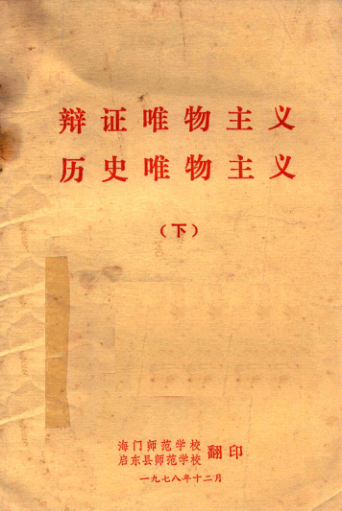 辩证唯物主义
历史唯物主义
（下）
海门师范学校
启东县师范学校 翻印
一九七八年十二月